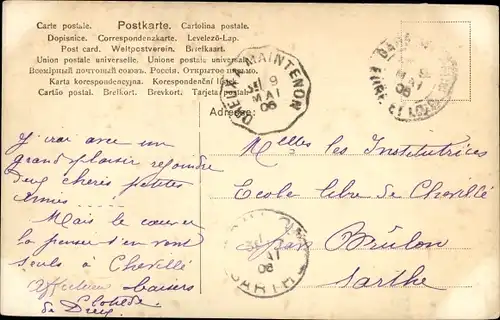 Carte postale. Postkarte. Cartolina postale.
Dopisnice. Correspondenzkarte. Levelező-Lap.
Post card. Weltpostverein. Brielkaart.
Union postale universelle. Unione postale universale.
Всемірный почтовый союзъ. Россія. Открытое письмо.
Karta korespondencyjna. Korespondenční lístek.
Cartão postal. Brefkort. Brevkort. Tarjeta postal.
Adresse:
MAINTENON
9
MAI
06
GARE
9
MAI
06
EURE ET LOIR
J'irai avec un
grand plaisir rejoindre
deux chéries petites
âmes .....
Mais le cœur et
la pensée s'en vont
seuls à Chevillé
Affectueux baisers
Clotilde.
de Dreux
Melles les Institutrices
Ecole libre de Chevillé
par Brûlon
Sarthe
06
SARTHE